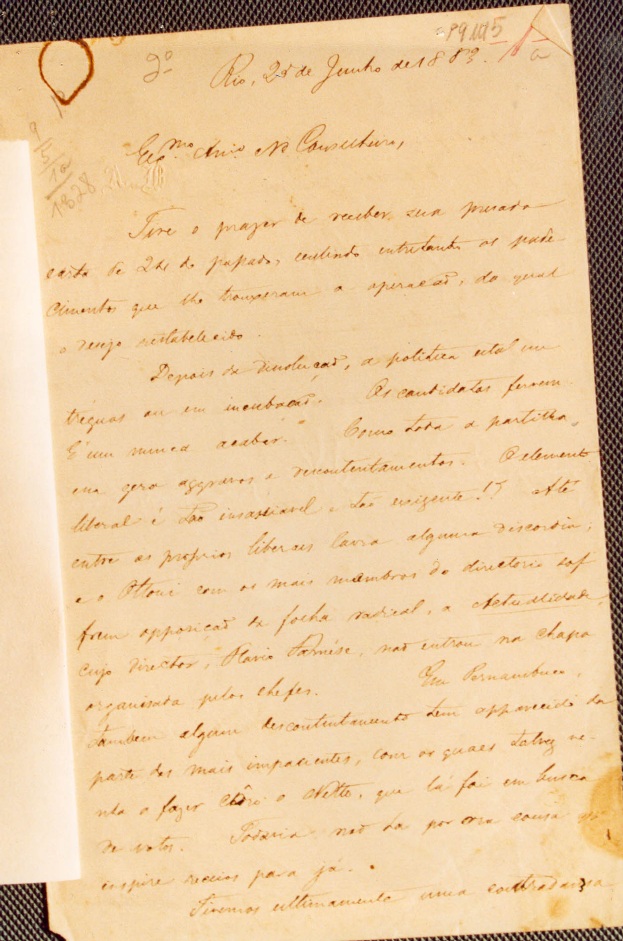 2º
Rio, 2 de Junho de 1863.
a
9/5/1a
1828
Exmo. Amo. Snr. Conselheiro,
Tive o prazer de receber sua presada
carta de 24 do passado, sentindo entretanto os pade
cimentos que lhe trouxeram a operacaõ, do qual
o desejo restabelecido.
Depois da dissoluçaõ, a politica está em
treguas ou em incubacaõ. Os candidatos fervem.
É um nunca acabar. Como toda a partilha,
ena gera aggravos e descontentamentos. O elemento
liberal é taõ insaciavel e taõ exigente!! Até
entre os proprios liberais lavra alguma discordia;
e o Ottoni com os mais membros do directorio sof
frem opposiçaõ da folha radical, a Actualidade,
cujo director, Flavio Farnése, naõ entrou na chapa
organisada pelos chefes. Em Pernambuco,
tambem algum descontentamento tem apparecido da
parte dos mais impacientes, com os quaes talvez ve
nha a fazer côro o Netto, que lá foi em busca
de votos. Todavia naõ ha por ora cousa
inspire receios para já.
Tivemos ultimamente uma contradansa